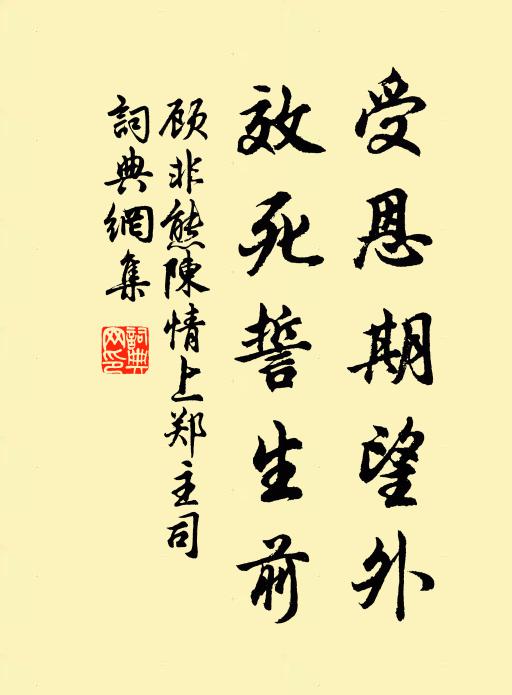 受恩期望外
效死誓生前
顾非熊陳情上郑主司
詞典網集
詞典網印